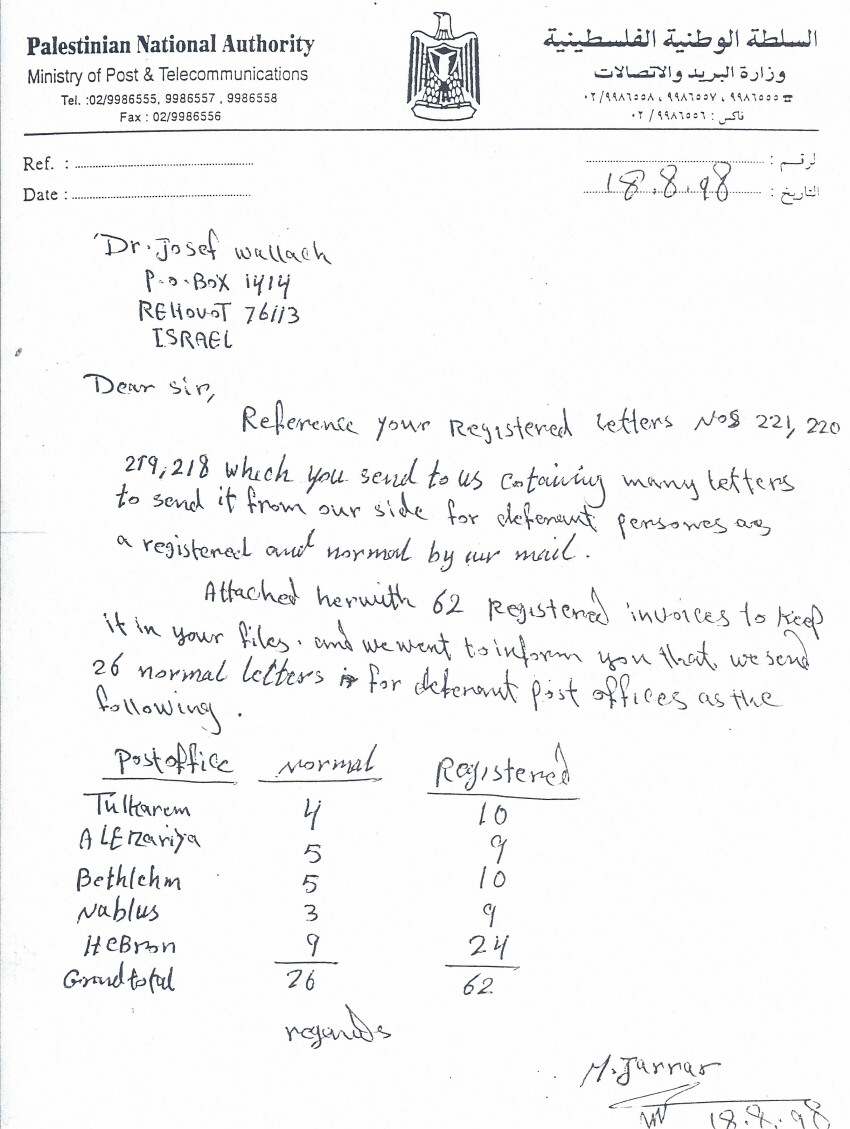 Palestinian National Authority
Ministry of Post & Telecommunications
Tel. :02/9986555, 9986557 , 9986558
Fax : 02/9986556
السلطة الوطنية الفلسطينية
وزارة البريد والاتصالات
☎ ٩٩٨٦٥٥٥ ، ٩٩٨٦٥٥٧ ، ٠٢/٩٩٨٦٥٥٨
فاكس : ٠٢/٩٩٨٦٥٥٦
Ref. :
Date :
لرقم :
التاريخ : 18.8.98
Dr. Josef Wallach
P.o.Box 1414
REHovoT 76113
ISRAEL
Dear sir,
Reference your Registered Letters Nos 221, 220
219, 218 which you send to us cotaining many letters
to send it from our side for deferant persones as
a registered and normal by our mail.
Attached herwith 62 Registered invoices to keep
it in your files. and we went to inform you that, we send
26 normal letters for deferant post offices as the
following.
Post office Normal Registered
Tulkarem 4 10
ALEzariya 5 9
Bethlehm 5 10
Nablus 3 9
HeBron 9 24
Grand total 26 62
regards
M. Jarrar
18.8.98